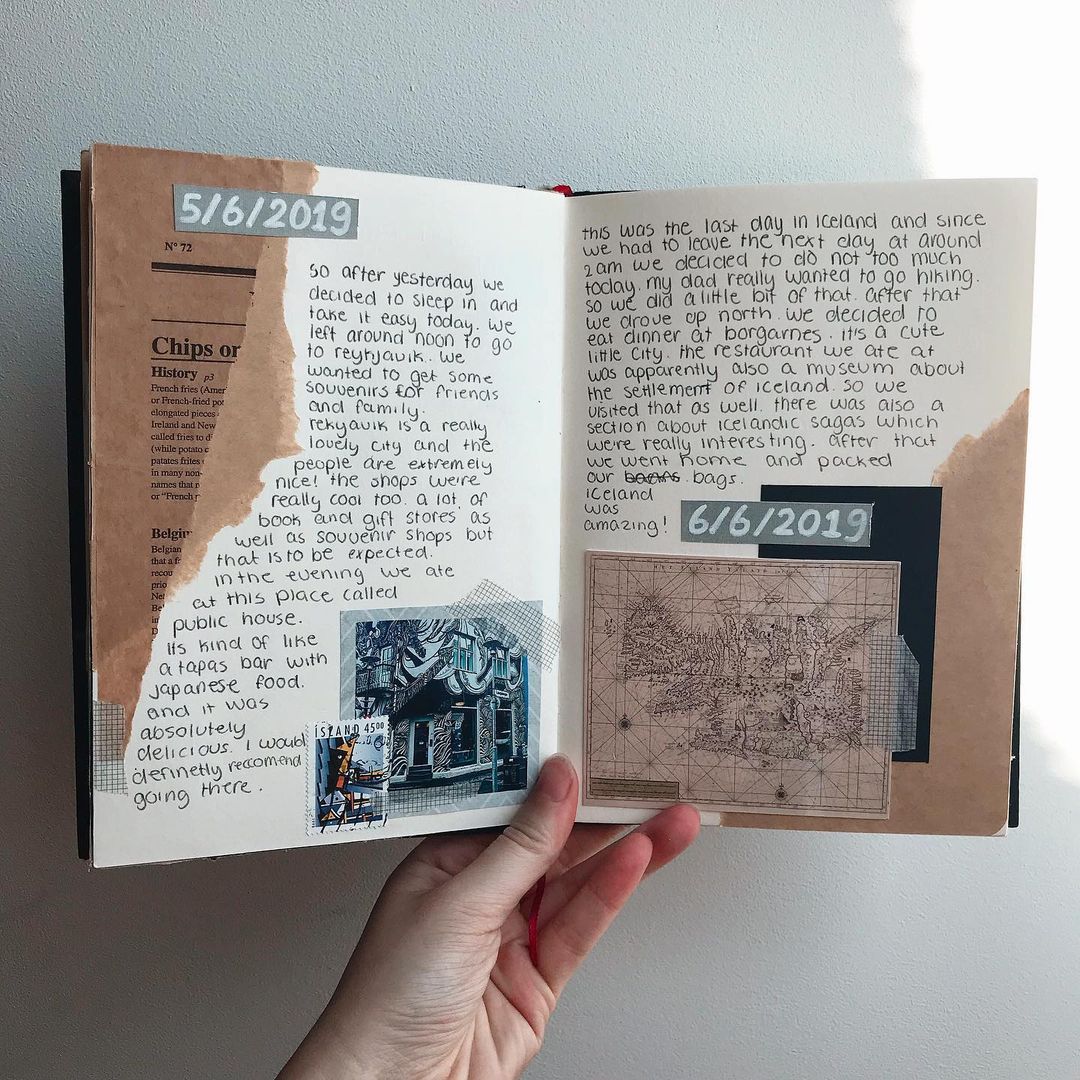 5/6/2019
N° 72
Chips or
History p3
French fries (Amer
or French-fried pot
elongated pieces
Ireland and New
called fries to di
(while potato c
patates frites
in many non-
names that r
or "French p
Belgium
Belgian
that a f
recou
prio
Ne
Be
in
D
so after yesterday we
decided to sleep in and
take it easy today. we
left around noon to go
to reykjavik. we
wanted to get some
souvenirs for friends
and family.
rekyavik is a really
lovely city and the
people are extremely
nice! the shops we're
really cool too. a lot of
book and gift stores as
well as souvenir shops but
that is to be expected.
in the evening we ate
at this place called
public house.
its kind of like
a tapas bar with
japanese food.
and it was
absolutely
delicious. I would
definetly reccomend
going there.
ÍSLAND 4500
this was the last day in iceland and since
we had to leave the next day at around
2am we decided to do not too much
today. my dad really wanted to go hiking.
so we did a little bit of that. after that
we drove up north. we decided to
eat dinner at borgarnes. it's a cute
little city. the restaurant we ate at
was apparently also a museum about
the settlement of iceland. so we
visited that as well. there was also a
section about icelandic sagas which
we're really interesting. after that
we went home and packed
our bags.
iceland
was
amazing!
6/6/2019